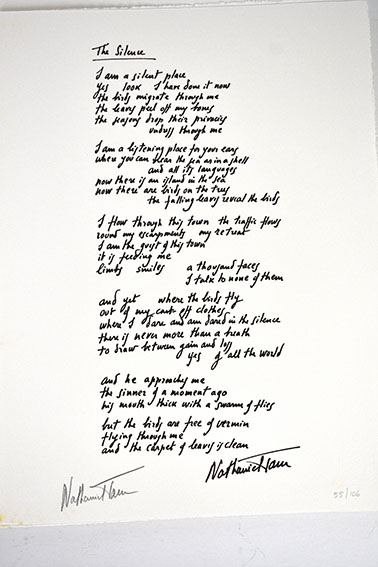 The Silence
I am a silent place
yes look I have done it now
the birds migrate through me
the leaves peel off my bones
the seasons drop their privacies
undress through me
I am a listening place for your ears
when you can hear the sea as in a shell
and all its languages
now there is an island in the sea
now there are birds on the trees
the falling leaves reveal the birds
I flow through this town the traffic flows
round my escarpments my retreat
I am the guest of this town
it is feeding me
limbs smiles a thousand faces
I talk to none of them
and yet where the birds fly
out of my cast off clothes
where I dare and am dared in the silence
there is never more than a breath
to draw between gain and loss
yes of all the world
and he approaches me
the sinner of a moment ago
his mouth thick with a swarm of flies
but the birds are free of vermin
flying through me
and the carpet of leaves is clean
Nathaniel Tarn
Nathaniel Tarn
55/106